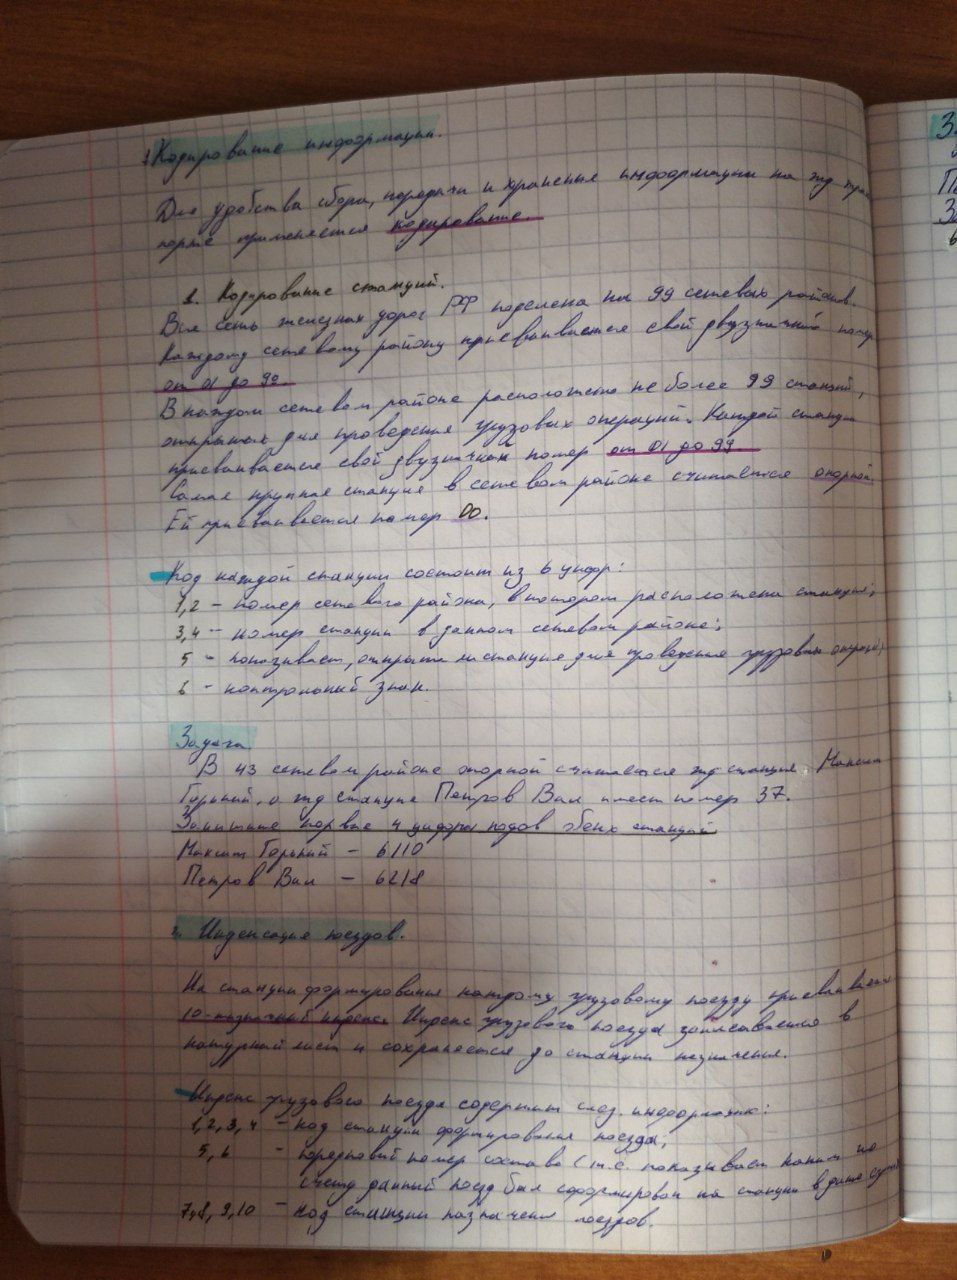 1. Кодирование информации.
Для удобства сбора, передачи и хранения информации на жд транс
порте применяется кодирование.
1. Кодирование станций.
Вся сеть железных дорог РФ поделена на 99 сетевых районов.
Каждому сетевому району присваивается свой двузначный номер
от 01 до 99.
В каждом сетевом районе расположено не более 99 станций,
открытых для проведения грузовых операций. Каждой станции
присваивается свой двузначный номер от 01 до 99.
Самая крупная станция в сетевом районе считается опорной.
Ей присваивается номер 00.
Код каждой станции состоит из 6 цифр:
1,2 - номер сетевого района, в котором расположена станция;
3,4 - номер станции в данном сетевом районе;
5 - показывает, открыта ли станция для проведения грузовых операций;
6 - контрольный знак.
Задача
В 43 сетевом районе опорной считается жд станция Максим
Горький, а жд станция Петров Вал имеет номер 37.
Запишите первые 4 цифры кодов обеих станций
Максим Горький - 6110
Петров Вал - 6218
2. Индексация поездов.
На станции формирования каждому грузовому поезду присваивается
10-значный индекс. Индекс грузового поезда записывается в
натурный лист и сохраняется до станции назначения.
Индекс грузового поезда содержит след. информацию:
1,2,3,4 - код станции формирования поезда;
5,6 - порядковый номер состава (т.е. показывает каким по
счету данный поезд был сформирован на станции в данные сутки)
7,8,9,10 - код станции назначения поездов.
За